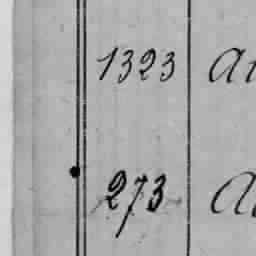 1323
273